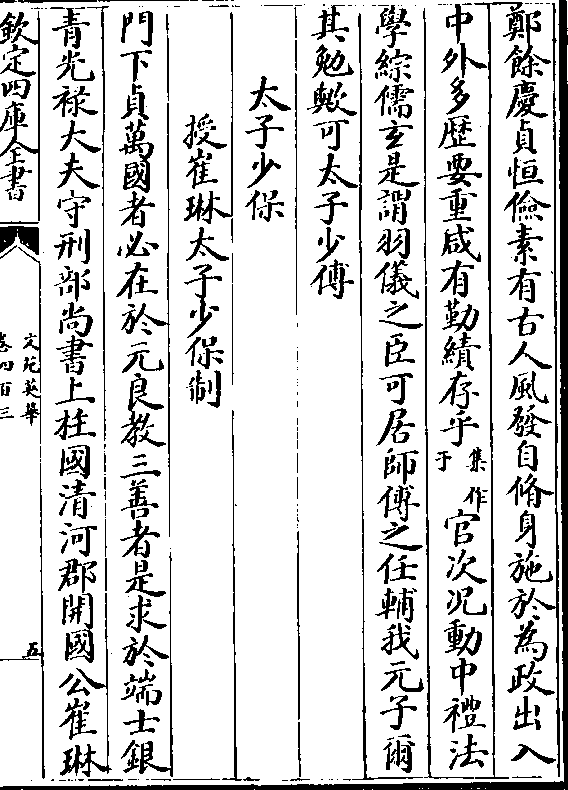 鄭餘慶貞恒儉素有古人風發自脩身施於為政出入
中外多歷要重咸有勤績存乎集作于官次况動中禮法
學綜儒玄是謂羽儀之臣可居師傅之任輔我元子爾
其勉歟可太子少傅
太子少保
授崔琳太子少保制
門下貞萬國者必在於元良教三善者是求於端士銀
青光祿大夫守刑部尚書上柱國清河郡開國公崔琳
欽定四庫全書
文苑英華
卷四百三
五